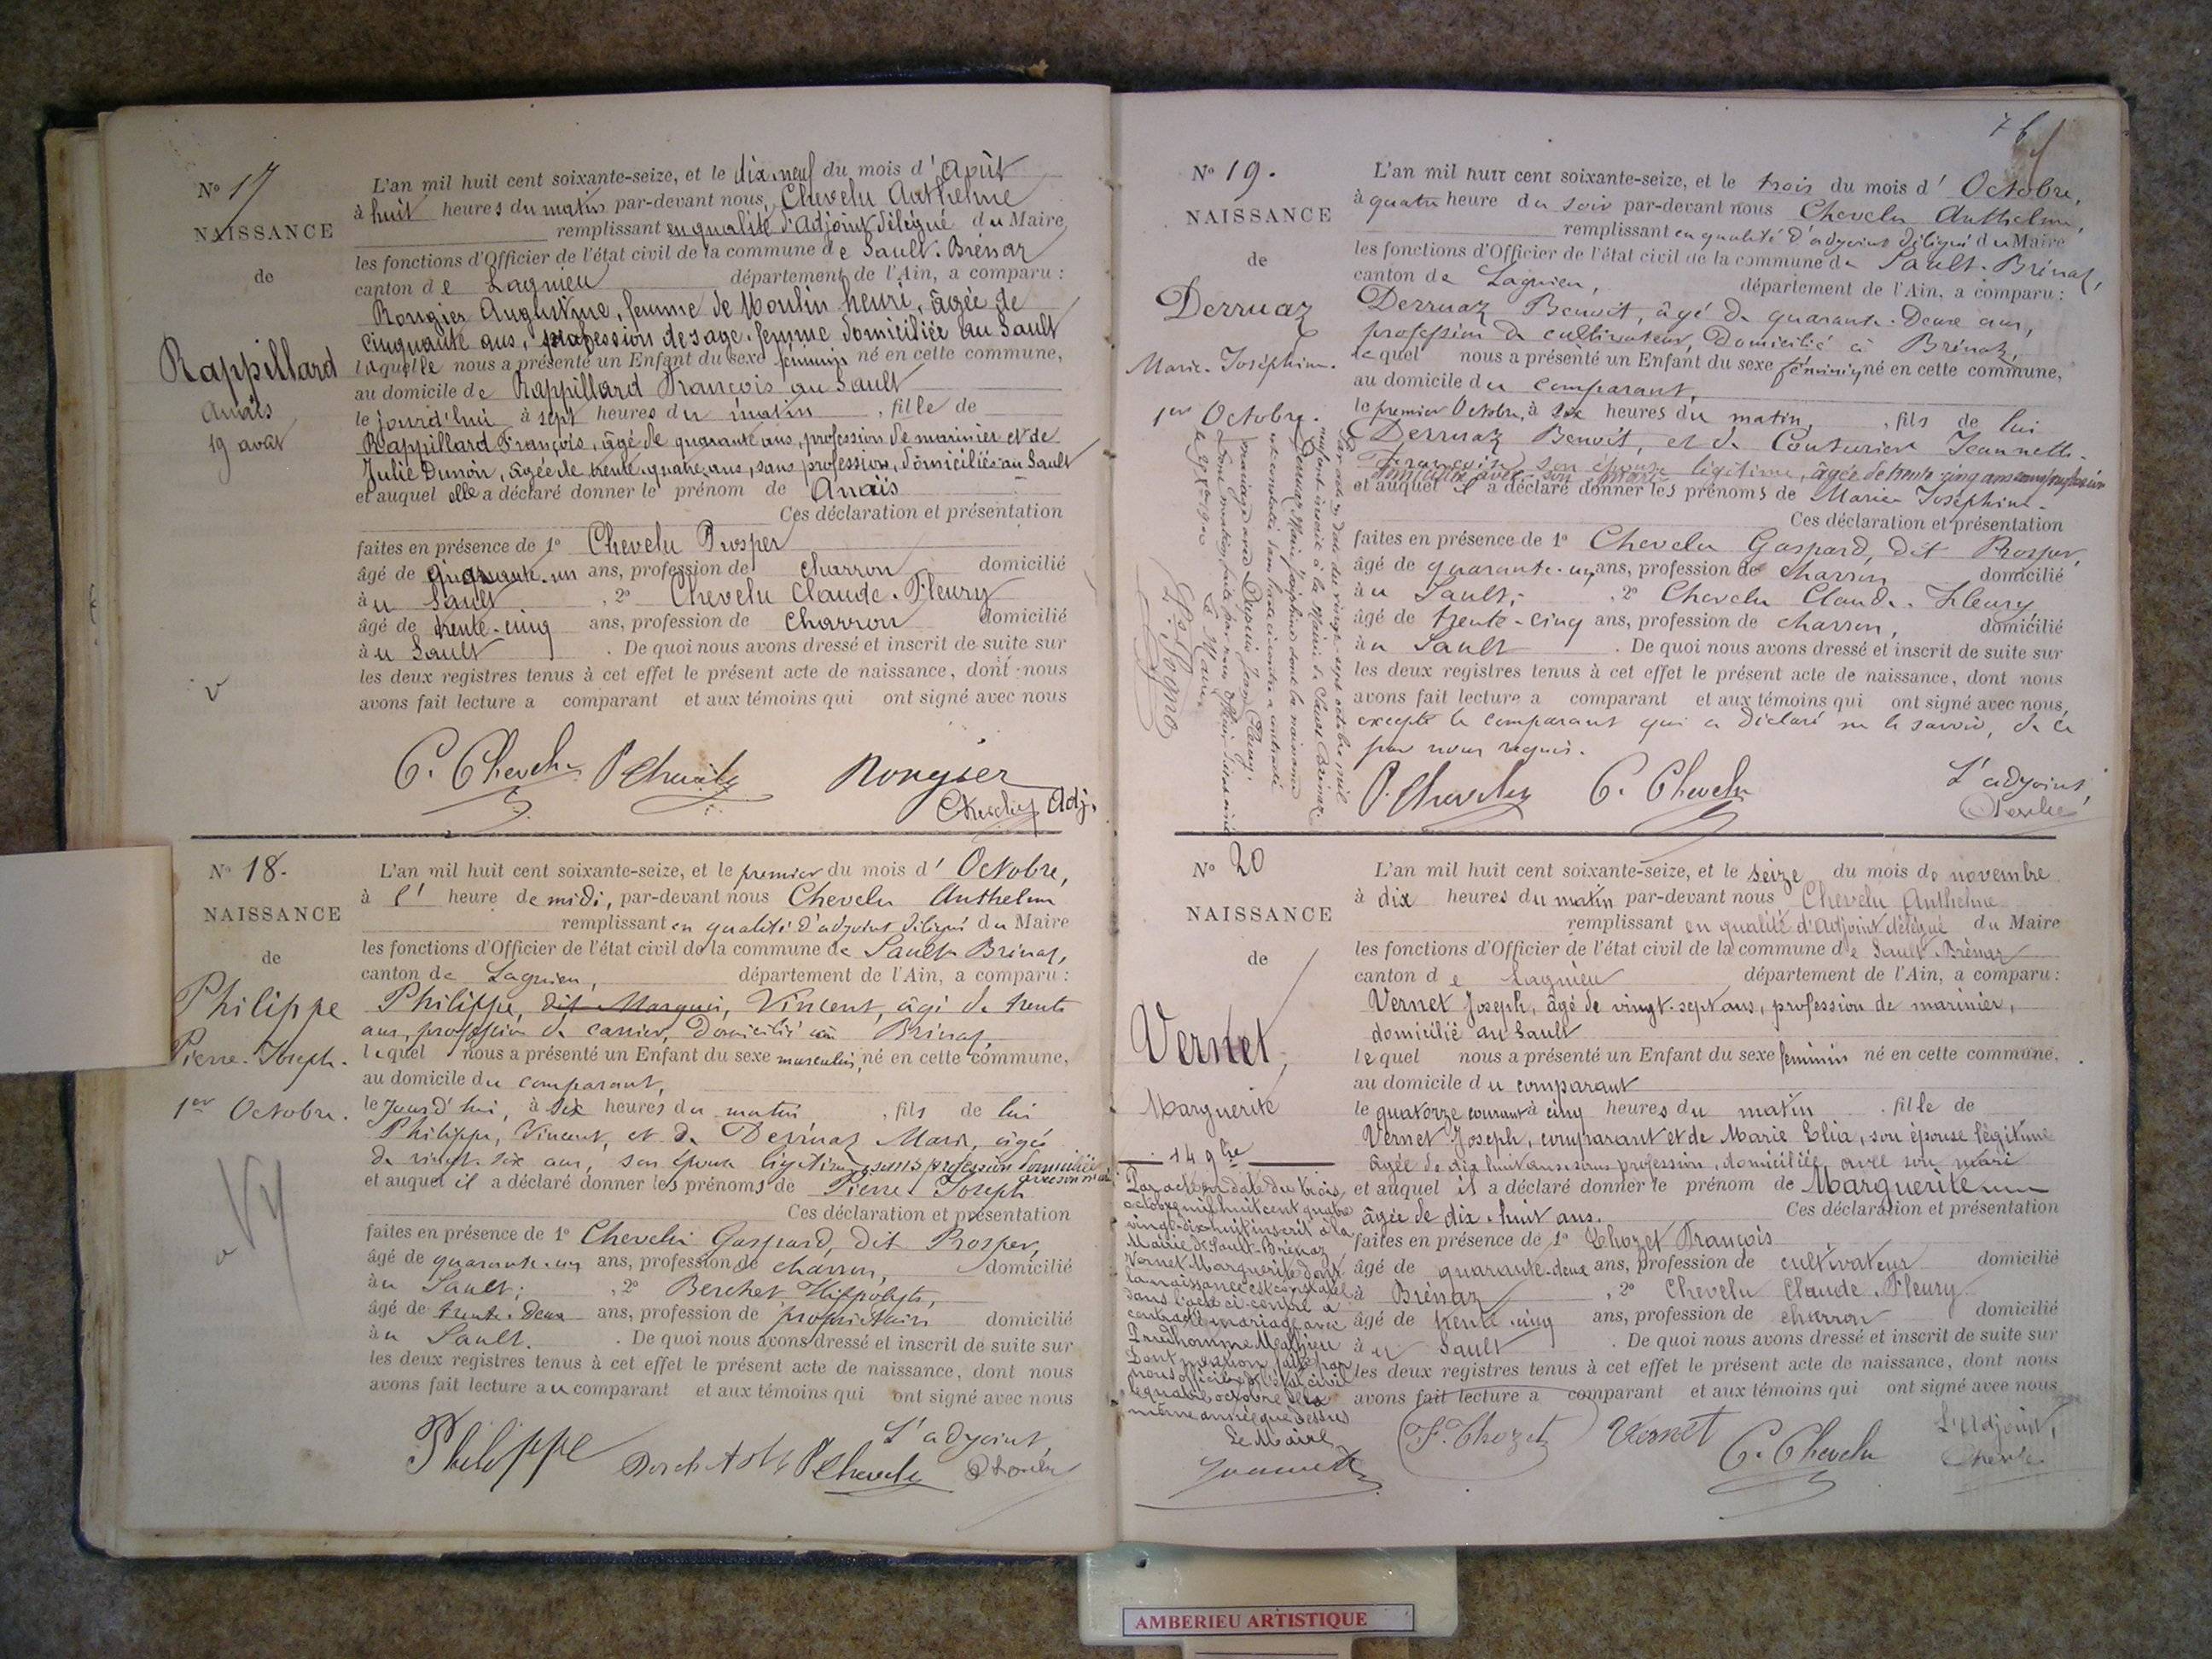 No 17
NAISSANCE
de
Rappillard
Anaïs
19 août
L'an mil huit cent soixante-seize, et le dix-neuf du mois d'Août
à huit heures du matin par-devant nous, Chevelu Anthelme
remplissant en qualité d'Adjoint délégué du Maire
les fonctions d'Officier de l'état civil de la commune de Sault-Brénaz
canton de Lagnieu département de l'Ain, a comparu :
Rongier Augustine, femme de Moulin henri, âgée de
cinquante ans, profession de sage-femme domiciliée au Sault
laquelle nous a présenté un Enfant du sexe féminin né en cette commune,
au domicile de Rappillard François au Sault
le jourd'hui à sept heures du matin, fille de
Rappillard François, âgé de quarante ans, profession de marinier et de
Julie Dunoir, âgée de trente-quatre ans, sans profession, domiciliés au Sault
et auquel elle a déclaré donner le prénom de Anaïs
Ces déclaration et présentation
faites en présence de 1o Chevelu Prosper
âgé de quarante-un ans, profession de charron domicilié
au Sault, 2o Chevelu Claude-Fleury
âgé de trente-cinq ans, profession de charron domicilié
au Sault. De quoi nous avons dressé et inscrit de suite sur
les deux registres tenus à cet effet le présent acte de naissance, dont nous
avons fait lecture a comparant et aux témoins qui ont signé avec nous
C. Chevelu P Chevelu Rongier
Chevelu Adj.
No 18.
NAISSANCE
de
Philippe
Pierre-Joseph.
1er Octobre.
L'an mil huit cent soixante-seize, et le premier du mois d'Octobre,
à l'heure de midi, par-devant nous Chevelu Anthelme
remplissant en qualité d'adjoint délégué du Maire
les fonctions d'Officier de l'état civil de la commune de Sault-Brénaz,
canton de Lagnieu, département de l'Ain, a comparu :
Philippe, dit Marquis, Vincent, âgé de trente
ans, profession de carrier, domicilié à Brénaz,
lequel nous a présenté un Enfant du sexe masculin, né en cette commune,
au domicile du comparant,
le jourd'hui, à six heures du matin, fils de lui
Philippe, Vincent, et de Derruaz Marie, âgée
de vingt-six ans, son épouse légitime, sans profession domiciliée avec son mari
et auquel il a déclaré donner les prénoms de Pierre Joseph
Ces déclaration et présentation
faites en présence de 1o Chevelu Gaspard, dit Prosper,
âgé de quarante-un ans, profession de charron, domicilié
au Sault; 2o Berchet Hippolyte,
âgé de trente-deux ans, profession de propriétaire domicilié
au Sault. De quoi nous avons dressé et inscrit de suite sur
les deux registres tenus à cet effet le présent acte de naissance, dont nous
avons fait lecture au comparant et aux témoins qui ont signé avec nous
L'adjoint,
Philippe P Chevelu
76
No 19.
NAISSANCE
de
Derruaz
Marie-Joséphine.
1er Octobre.
L'an mil huit cent soixante-seize, et le trois du mois d'Octobre,
à quatre heure du soir par-devant nous Chevelu Anthelme,
remplissant en qualité d'adjoint délégué du Maire
les fonctions d'Officier de l'état civil de la commune de Sault-Brénaz,
canton de Lagnieu, département de l'Ain, a comparu :
Derruaz Benoit, âgé de quarante-deux ans,
profession de cultivateur, domicilié à Brénaz,
lequel nous a présenté un Enfant du sexe féminin né en cette commune,
au domicile du comparant,
le premier Octobre, à six heures du matin, fils de lui
Derruaz Benoit, et de Couturier Jeannette-
Françoise, son épouse légitime, âgée de trente-cinq ans sans profession
domiciliée avec son mari
et auquel il a déclaré donner les prénoms de Marie Joséphine.
Ces déclaration et présentation
faites en présence de 1o Chevelu Gaspard, dit Prosper,
âgé de quarante-un ans, profession de charron domicilié
au Sault; 2o Chevelu Claude-Fleury,
âgé de trente-cinq ans, profession de charron, domicilié
au Sault. De quoi nous avons dressé et inscrit de suite sur
les deux registres tenus à cet effet le présent acte de naissance, dont nous
avons fait lecture a comparant et aux témoins qui ont signé avec nous,
excepté le comparant qui a déclaré ne le savoir, de ce
par nous requis.
P. Chevelu C. Chevelu
L'adjoint,
Chevelu
Par acte en date du vingt-sept octobre mil
neuf cent inscrit à la Mairie de Sault-Brénaz
Derruaz Marie Joséphine dont la naissance
est constatée dans l'acte ci-contre a contracté
mariage avec Dupuis Jean Remy.
Dont mention faite par nous officier de l'état civil
Le Maire
No 20
NAISSANCE
de
Vernet
Marguerite
14 9bre
L'an mil huit cent soixante-seize, et le seize du mois de novembre
à dix heures du matin par-devant nous Chevelu Anthelme
remplissant en qualité d'Adjoint délégué du Maire
les fonctions d'Officier de l'état civil de la commune de Sault-Brénaz
canton de Lagnieu département de l'Ain, a comparu :
Vernet Joseph, âgé de vingt-sept ans, profession de marinier,
domicilié au Sault
lequel nous a présenté un Enfant du sexe féminin né en cette commune,
au domicile du comparant
le quatorze courant à cinq heures du matin, fille de
Vernet Joseph, comparant et de Marie Elia, son épouse légitime
âgée de dix huit ans sans profession, domiciliée avec son mari
et auquel il a déclaré donner le prénom de Marguerite
âgée de dix-huit ans. Ces déclaration et présentation
faites en présence de 1o Chozet François
âgé de quarante-deux ans, profession de cultivateur domicilié
à Brénaz, 2o Chevelu Claude-Fleury
âgé de trente-cinq ans, profession de charron domicilié
au Sault. De quoi nous avons dressé et inscrit de suite sur
les deux registres tenus à cet effet le présent acte de naissance, dont nous
avons fait lecture a comparant et aux témoins qui ont signé avec nous
F. Chozet Vernet C. Chevelu
L'Adjoint,
Chevelu
Par acte en date du trois
octobre mil huit cent quatre
vingt-dix-huit inscrit à la
Mairie de Sault-Brénaz
Vernet Marguerite dont
la naissance est constatée
dans l'acte ci-contre a
contracté mariage avec
Prudhomme Mathieu
Dont mention faite par
nous officier de l'état civil
le quatre octobre de la
même année que dessus
Le Maire
AMBERIEU ARTISTIQUE